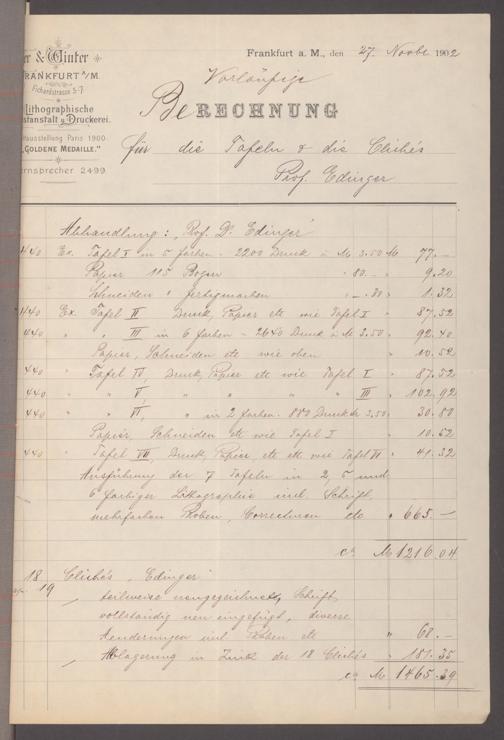 er & Winter
FRANKFURT A/M.
Fichardstrasse 5-7
Lithographische
stanstalt u. Druckerei.
tausstellung Paris 1900
„GOLDENE MEDAILLE."
rnsprecher 2499
Frankfurt a. M., den 27. Novbr 1902
Vorläufige
BERECHNUNG
für die Tafeln & die Clichés
Prof. Edinger
Abhandlung: „Prof. Dr. Edinger"
440 Ex. Tafel I in 5 farben - 2200 Druck à M 3.50 M 77.—
Papier 115 Bogen " 80.— " 9.20
Schneiden & fertigmachen " —.30 " 1.32
440 Ex. Tafel II Druck, Papier etc wie Tafel I " 87.52
440 " " III in 6 farben - 2640 Druck à M 3.50 " 92.40
Papier, Schneiden etc wie oben " 10.52
440 " Tafel IV, Druck, Papier etc wie Tafel I " 87.52
440 " " V, " " " " " III " 102.92
440 " " VI, " in 2 farben. 880 Druck à 3.50 " 30.80
Papier, Schneiden etc wie Tafel I " 10.52
440 " Tafel VII, Druck, Papier, etc etc wie Tafel VI " 41.32
Ausführung der 7 Tafeln in 2, 5 und
6 farbiger Lithographie incl. Schrift,
mehrfarben Proben, Correcturen etc " 665.—
M 1216.04
18 Clichés „Edinger"
19 teilweise neugezeichnet, Schrift
vollständig neu eingefügt, diverse
Aenderungen incl. Proben etc " 68.—
Ablagerung in Zink der 18 Clichés " 181.35
M 1465.39